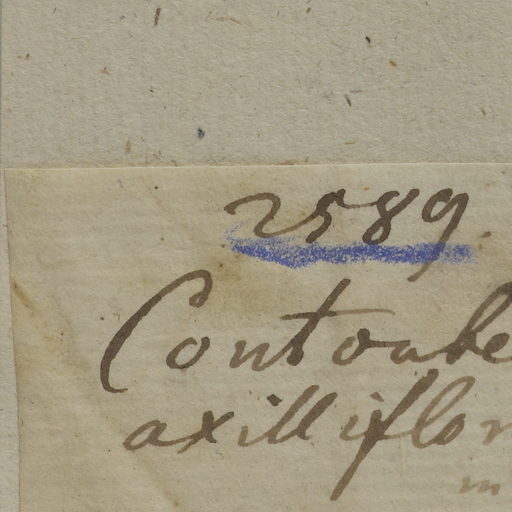 2589.
Contoube
axilliflor
m